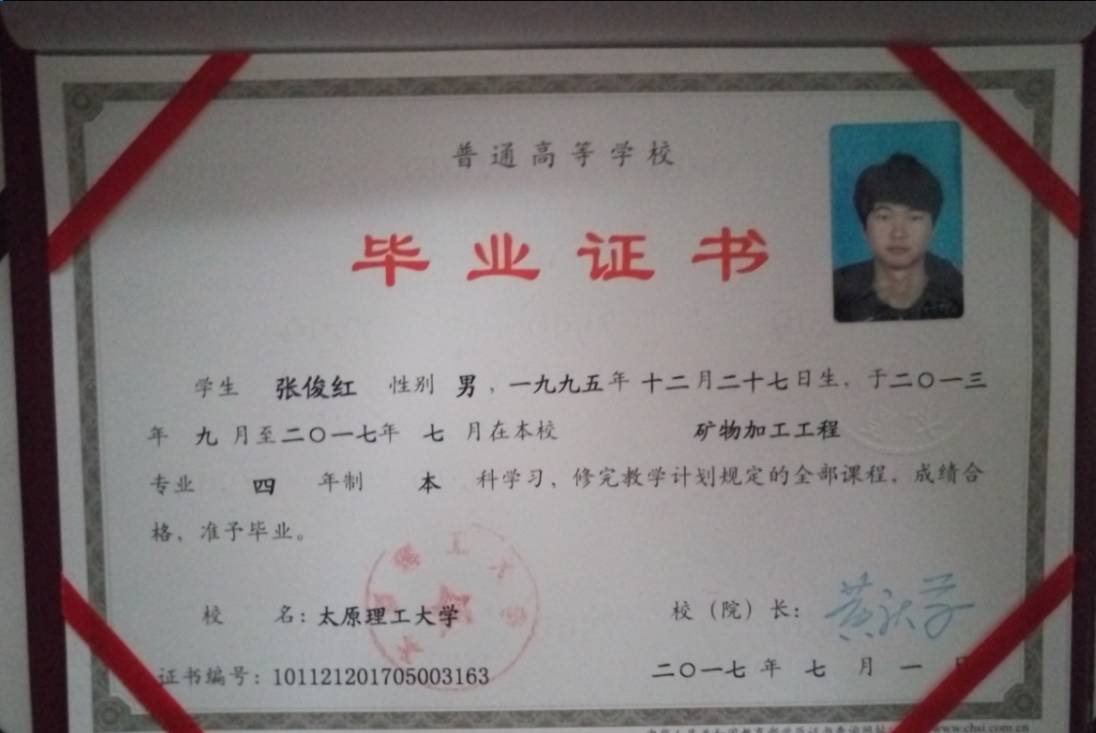 普通高等学校
毕业证书
学生 张俊红 性别 男，一九九五年 十二月二十七日生，于二〇一三
年 九 月至二〇一七年 七 月在本校 矿物加工工程
专业 四 年制 本 科学习，修完教学计划规定的全部课程，成绩合
格，准予毕业。
校 名：太原理工大学
校（院）长：
证书编号：101121201705003163
二〇一七 年 七 月 一 日
www.chsi.com.cn